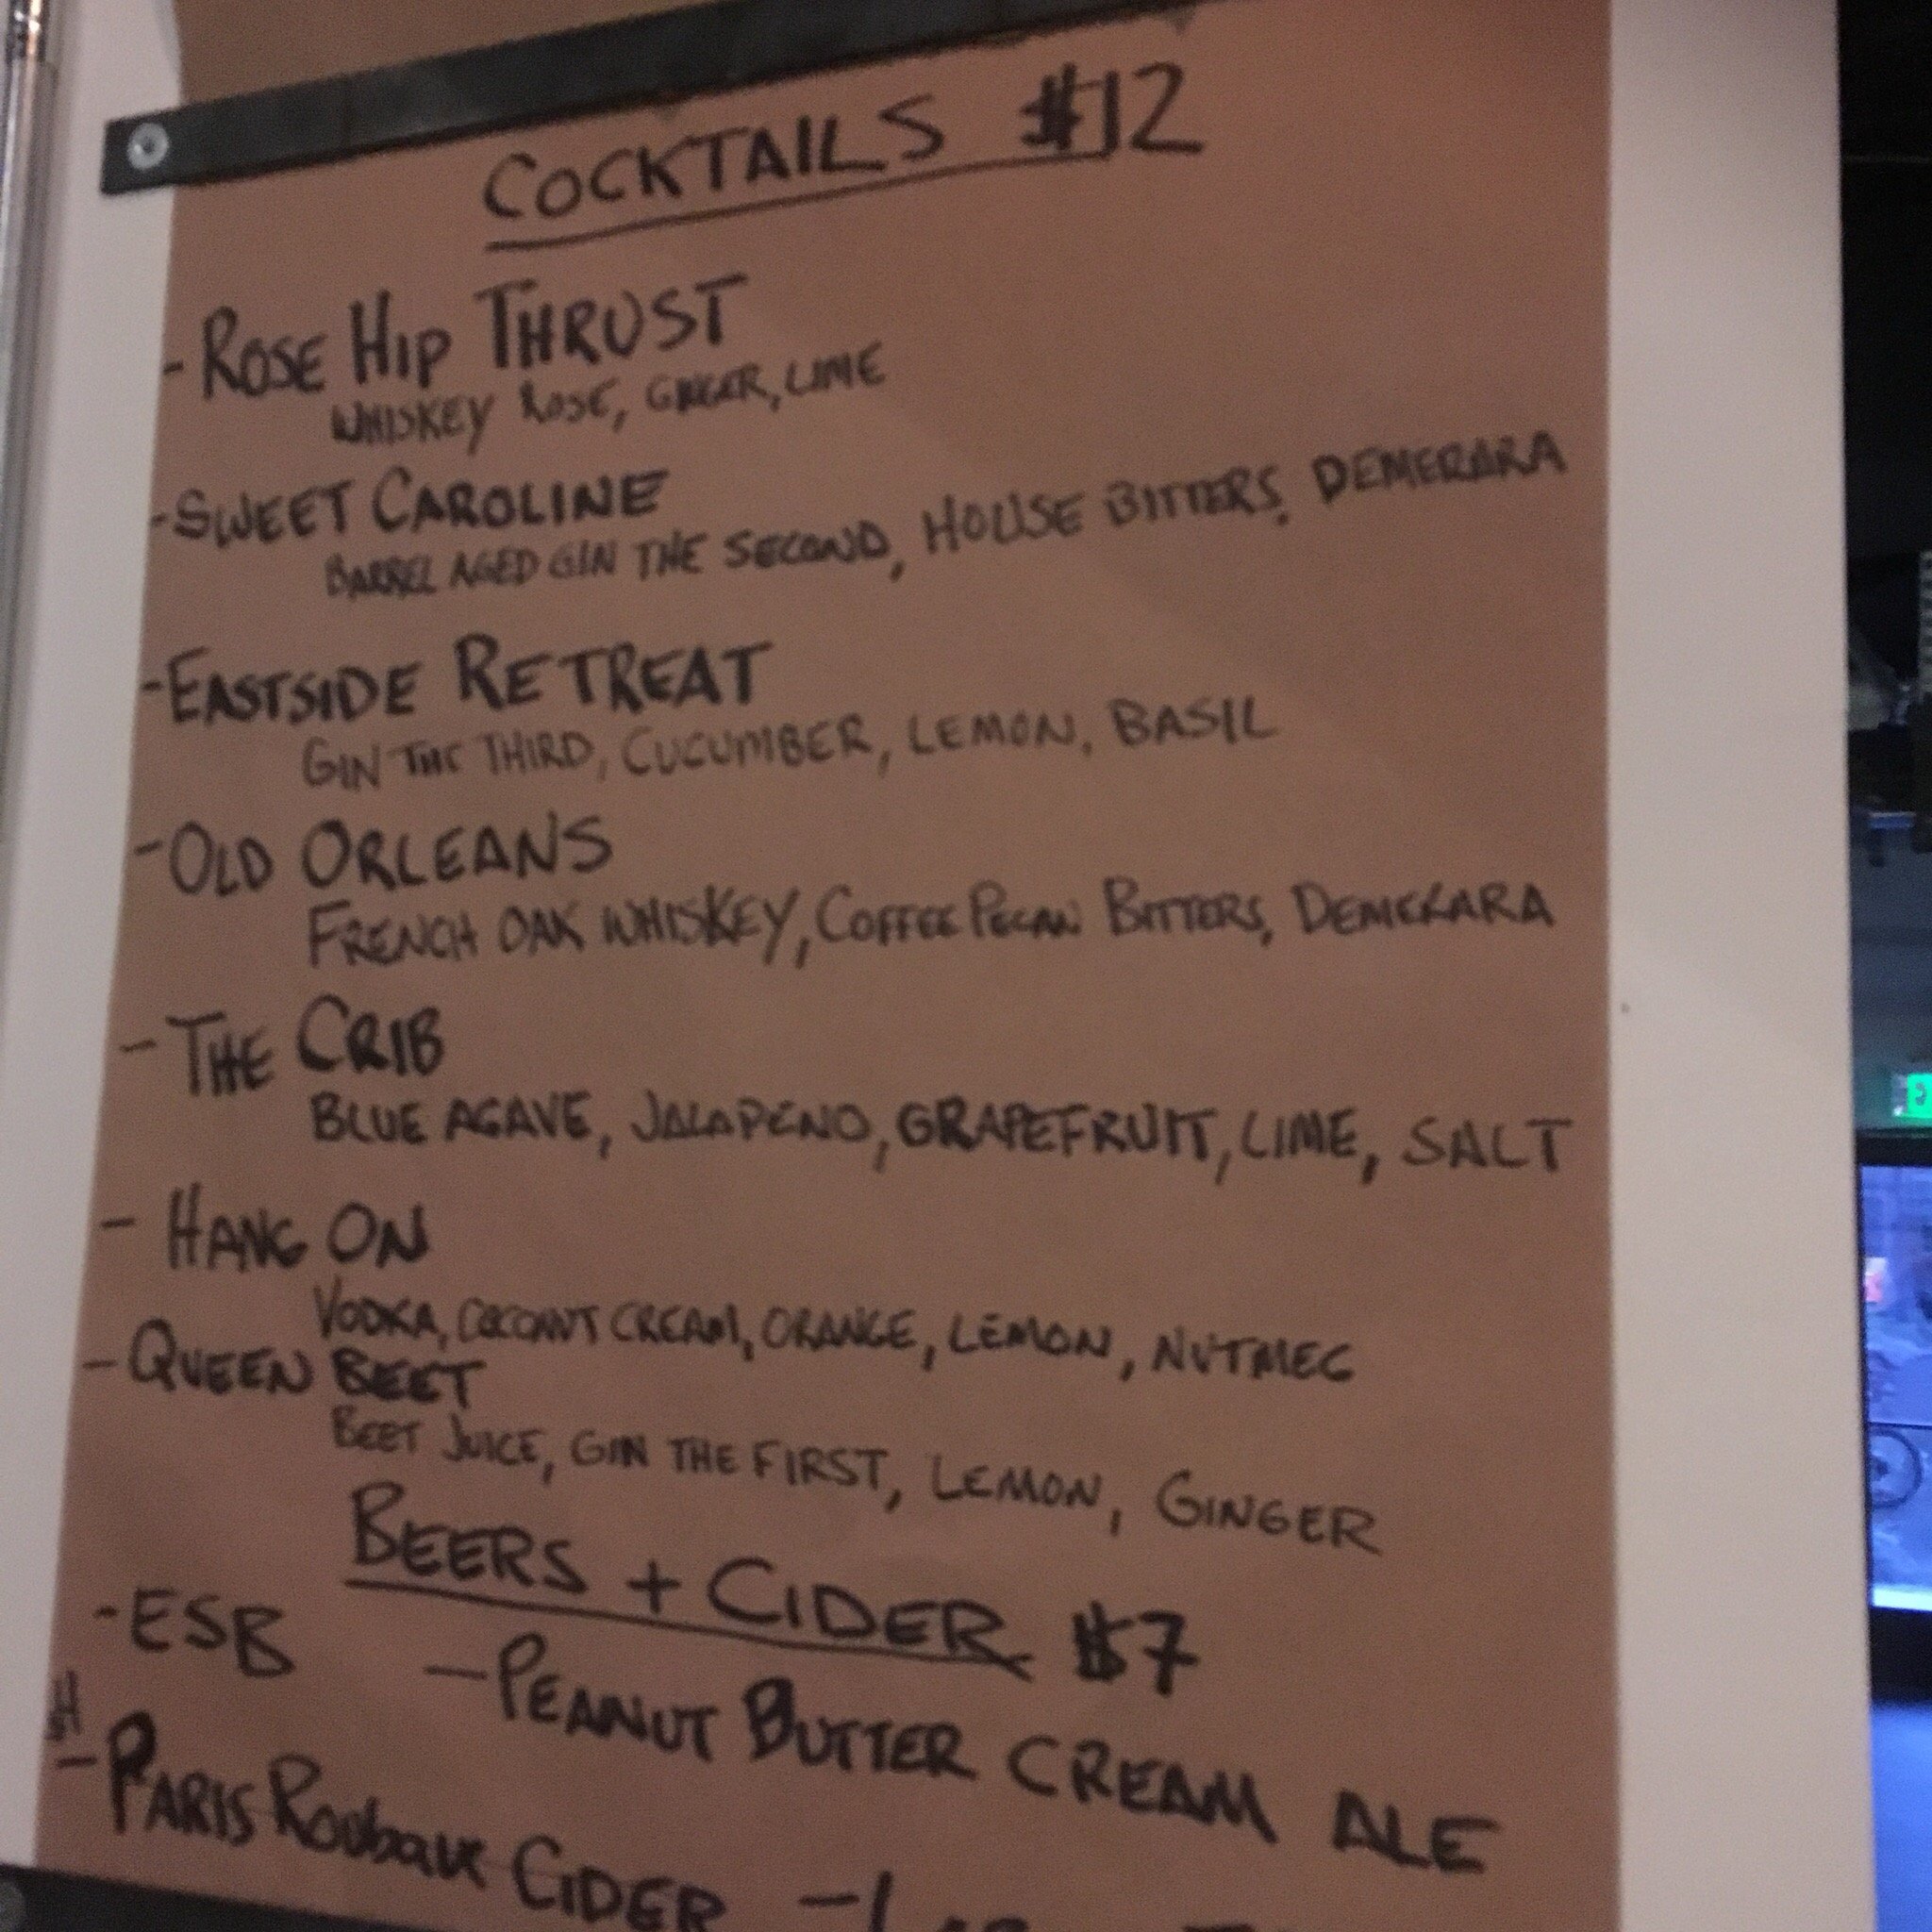 COCKTAILS $12
- ROSE HIP THRUST
WHISKEY ROSE, GINGER, LIME
- SWEET CAROLINE
BARREL AGED GIN THE SECOND, HOUSE BITTERS, DEMERARA
- EASTSIDE RETREAT
GIN THE THIRD, CUCUMBER, LEMON, BASIL
- OLD ORLEANS
FRENCH OAK WHISKEY, COFFEE PECAN BITTERS, DEMERARA
- THE CRIB
BLUE AGAVE, JALAPENO, GRAPEFRUIT, LIME, SALT
- HANG ON
VODKA, COCONUT CREAM, ORANGE, LEMON, NUTMEG
- QUEEN BEET
BEET JUICE, GIN THE FIRST, LEMON, GINGER
BEERS + CIDER $7
- ESB - PEANUT BUTTER CREAM ALE
- PARIS ROUBAUX CIDER -